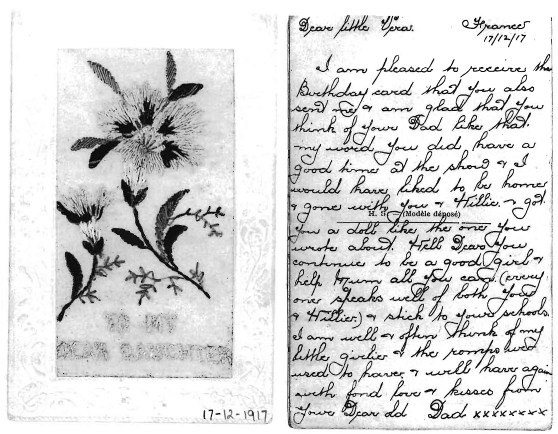 TO MY
DEAR DAUGHTER
17-12-1917
Dear little Vera.
France
17/12/17
I am pleased to receive the
Birthday card that you also
sent me & am glad that you
think of your Dad like that.
my word you did have a
good time at the show & I
would have liked to be home
& gone with you & Millie & got
H. S (Modèle déposé)
you a doll like the one you
wrote about. Well Dear you
continue to be a good girl &
help Mum all you can. (every
one speaks well of both you
& Millie.) & stick to your schools.
I am well & often think of my
little girlies & the romps we
used to have & will have again
with fond love & kisses from
Your Dear old Dad xxxxxxxx